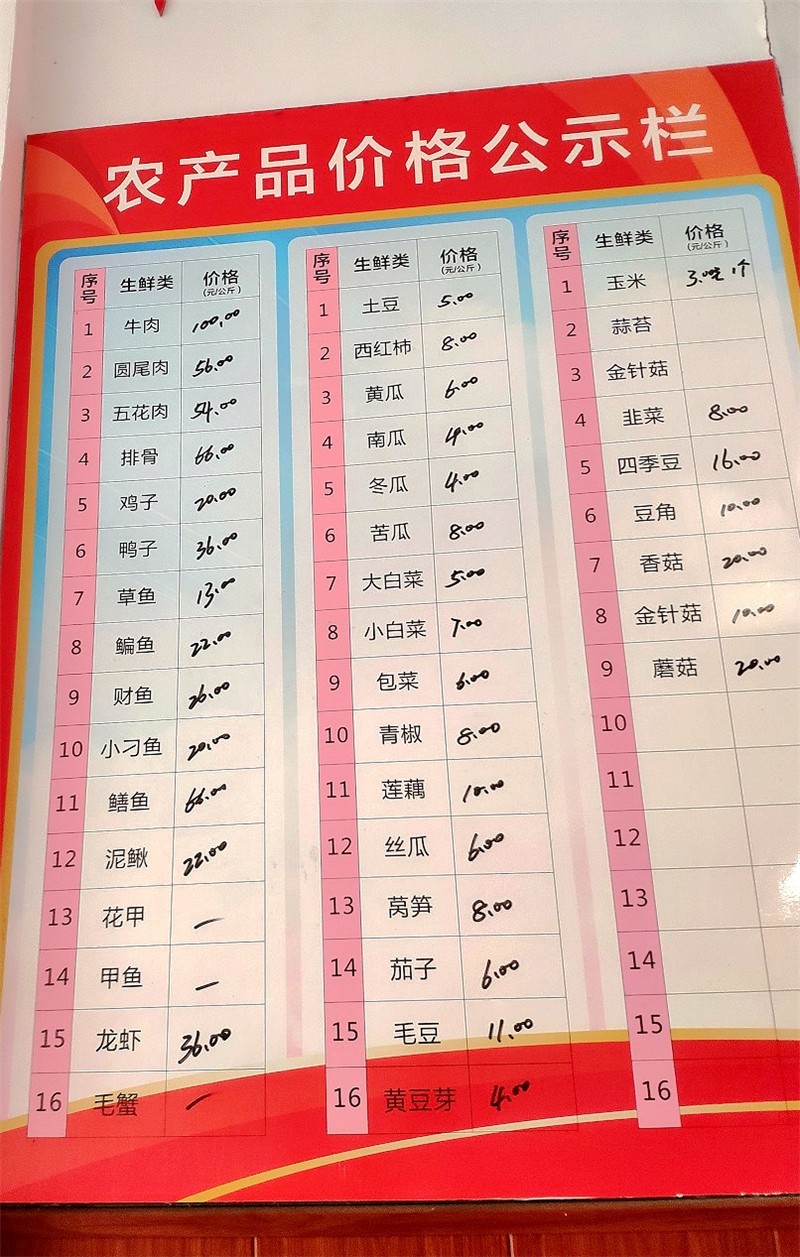 农产品价格公示栏
序号 生鲜类 价格(元/公斤)
1 牛肉 100.00
2 圆尾肉 56.00
3 五花肉 54.00
4 排骨 66.00
5 鸡子 20.00
6 鸭子 36.00
7 草鱼 13.00
8 鳊鱼 22.00
9 财鱼 26.00
10 小刁鱼 20.00
11 鳝鱼 66.00
12 泥鳅 22.00
13 花甲 —
14 甲鱼 —
15 龙虾 36.00
16 毛蟹 —
序号 生鲜类 价格(元/公斤)
1 土豆 5.00
2 西红柿 8.00
3 黄瓜 6.00
4 南瓜 4.00
5 冬瓜 4.00
6 苦瓜 8.00
7 大白菜 5.00
8 小白菜 7.00
9 包菜 6.00
10 青椒 8.00
11 莲藕 10.00
12 丝瓜 6.00
13 莴笋 8.00
14 茄子 6.00
15 毛豆 11.00
16 黄豆芽 4.00
序号 生鲜类 价格(元/公斤)
1 玉米
2 蒜苔
3 金针菇
4 韭菜 8.00
5 四季豆 16.00
6 豆角 10.00
7 香菇 20.00
8 金针菇 10.00
9 蘑菇 20.00
10
11
12
13
14
15
16